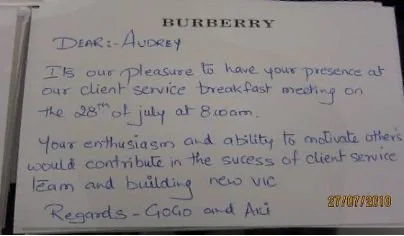 BURBERRY
DEAR:- AUDREY
It's our pleasure to have your presence at
our client service breakfast meeting on
the 28th of july at 8:00am.
Your enthusiasm and ability to motivate others
would contribute in the sucess of client service
team and building new VIC
Regards - GOGO and Aki
27/07/2010